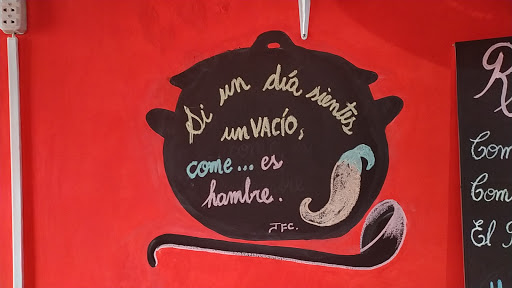 Si un día sientes
un VACÍO,
come... es
hambre.
JFC.
R
Com
Com
El